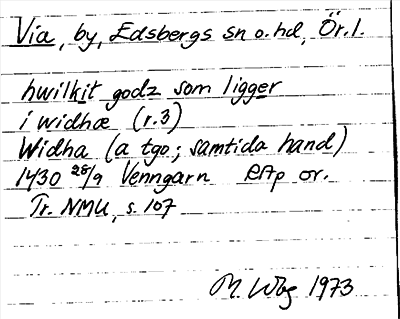 Via, by, Edsbergs sn o. hd, Ör. l.
hwilkit godz som ligger
i widhæ (r. 3)
Widha (a tgo; samtida hand)
1430 28/9 Venngarn RAp or.
Tr. NMU, s. 107
M. Wbg 1973